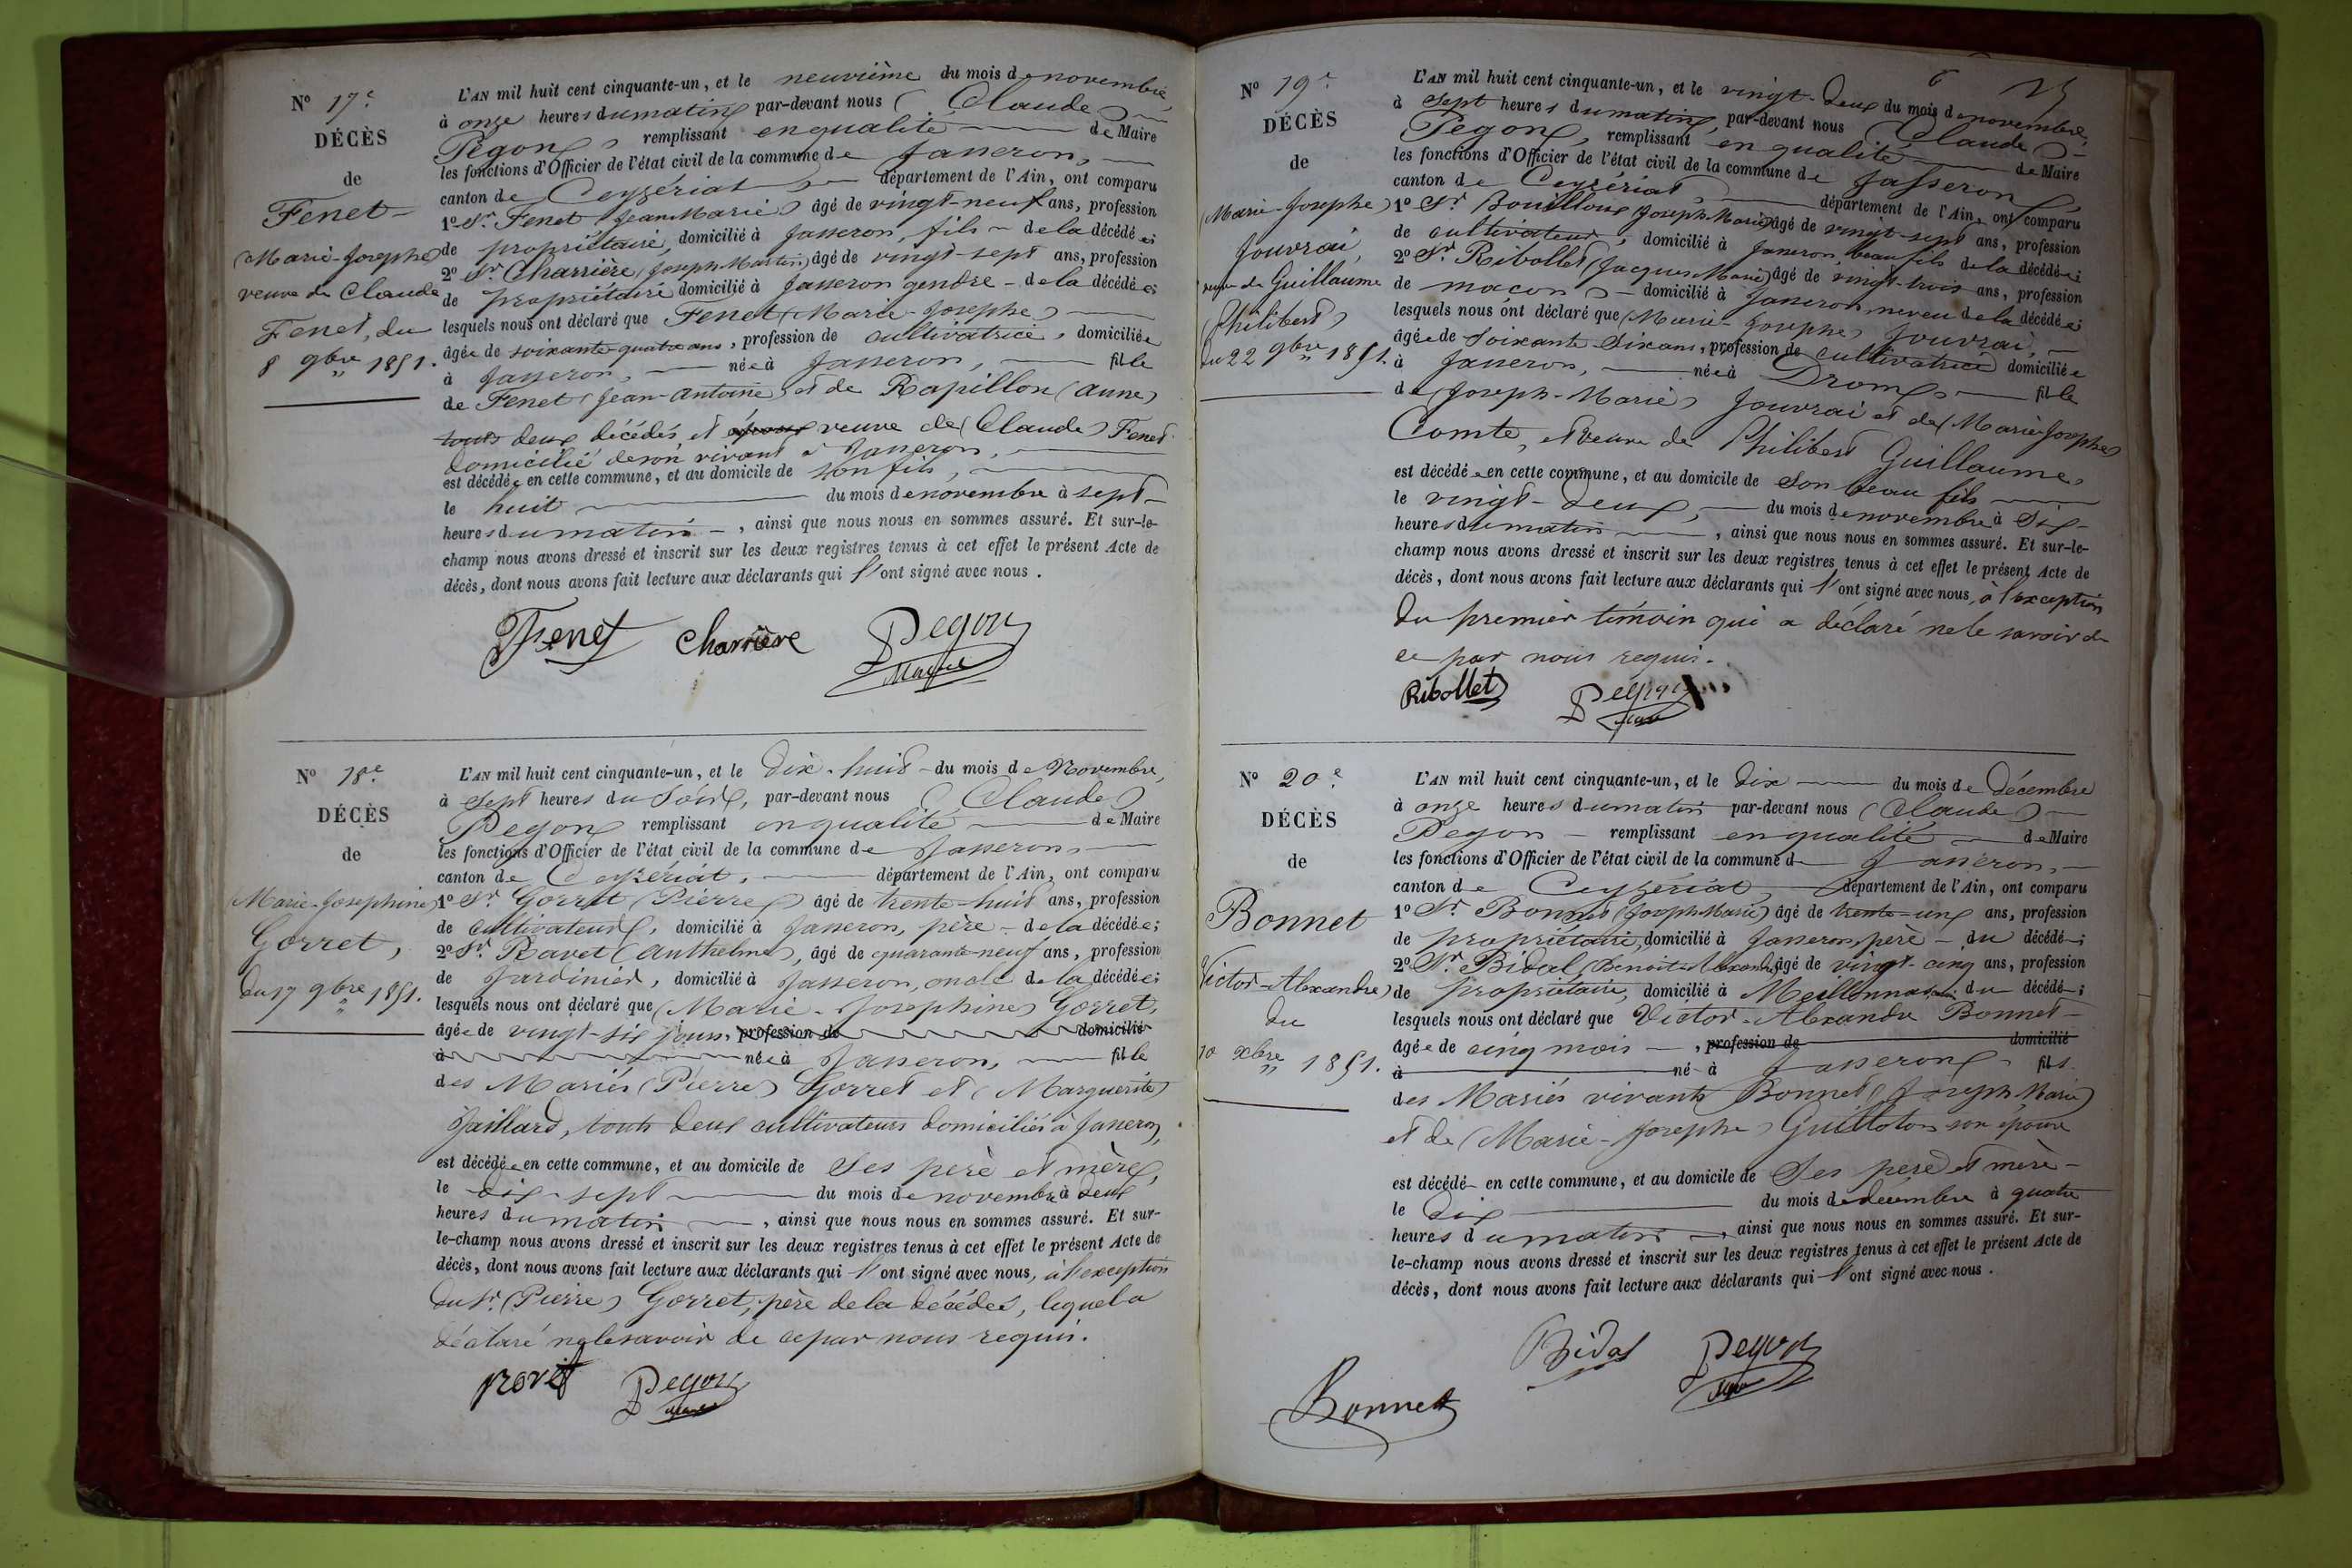 N° 17e
DÉCÈS
de
Fenet
(Marie-Josephe)
veuve de Claude
Fenet, du
8 9bre 1851.
L'AN mil huit cent cinquante-un, et le neuvième du mois de novembre,
à onze heures du matin par-devant nous (Claude)
Pegon, remplissant en qualité de Maire
les fonctions d'Officier de l'état civil de la commune de Jasseron,
canton de Ceyzériat, département de l'Ain, ont comparu
1° Sr. Fenet (Jean Marie) âgé de vingt-neuf ans, profession
de propriétaire, domicilié à Jasseron, fils de la décédée;
2° Sr. Charrière (Joseph-Martin) âgé de vingt-sept ans, profession
de propriétaire domicilié à Jasseron gendre de la décédée;
lesquels nous ont déclaré que Fenet (Marie-Josephe)
âgée de soixante-quatre ans, profession de cultivatrice, domiciliée
à Jasseron, née à Jasseron, fille
de Fenet (Jean-Antoine) et de Rapillon (Anne)
tous deux décédés, et épouse veuve de (Claude) Fenet
domicilié de son vivant à Jasseron,
est décédée en cette commune, et au domicile de son fils,
le huit du mois de novembre à sept
heures du matin, ainsi que nous nous en sommes assuré. Et sur-le-
champ nous avons dressé et inscrit sur les deux registres tenus à cet effet le présent Acte de
décès, dont nous avons fait lecture aux déclarants qui l'ont signé avec nous.
Fenet Charrière Pegon
Maire
N° 18e
DÉCÈS
de
(Marie-Josephine)
Gorret,
du 17 9bre 1851.
L'AN mil huit cent cinquante-un, et le dix-huit du mois de Novembre,
à sept heures du soir, par-devant nous (Claude)
Pegon remplissant en qualité de Maire
les fonctions d'Officier de l'état civil de la commune de Jasseron,
canton de Ceyzériat, département de l'Ain, ont comparu
1° Sr. Gorret (Pierre) âgé de trente-huit ans, profession
de cultivateur, domicilié à Jasseron, père de la décédée;
2° Sr. Ravet (Anthelme), âgé de quarante-neuf ans, profession
de Jardinier, domicilié à Jasseron, oncle de la décédée;
lesquels nous ont déclaré que (Marie-Josephine) Gorret,
âgée de vingt-six jours, profession de domicilié
à née à Jasseron, fille
des Mariés (Pierre) Gorret et (Marguerite)
Jaillard, touts deux cultivateurs domiciliés à Jasseron,
est décédée en cette commune, et au domicile de ses père et mère,
le dix-sept du mois de novembre à deux
heures du matin, ainsi que nous nous en sommes assuré. Et sur-
le-champ nous avons dressé et inscrit sur les deux registres tenus à cet effet le présent Acte de
décès, dont nous avons fait lecture aux déclarants qui l'ont signé avec nous, à l'exception
du Sr. (Pierre) Gorret, père de la décédée, lequel a
déclaré ne le savoir de ce par nous requis.
Pegon
N° 19e
DÉCÈS
de
(Marie-Josephe)
Jouvrai,
veuve de Guillaume
(Philibert)
du 22 9bre 1851.
L'AN mil huit cent cinquante-un, et le vingt-deux du mois de novembre
à sept heures du matin, par-devant nous (Claude)
Pegon, remplissant en qualité de Maire
les fonctions d'Officier de l'état civil de la commune de Jasseron,
canton de Ceyzériat, département de l'Ain, ont comparu
1° Sr. Bouilloux (Joseph-Marie) âgé de vingt-sept ans, profession
de cultivateur, domicilié à Jasseron, beau fils de la décédée;
2° Sr. Ribollet (Jacques Marie) âgé de vingt-trois ans, profession
de maçon domicilié à Jasseron neveu de la décédée;
lesquels nous ont déclaré que (Marie-Josephe) Jouvrai,
âgée de soixante-six ans, profession de cultivatrice domiciliée
à Jasseron, née à Drom, fille
de (Joseph-Marie) Jouvrai et de (Marie-Josephe)
Comte, et veuve de Philibert Guillaume,
est décédée en cette commune, et au domicile de son beau fils
le vingt-deux, du mois de novembre à six
heures du matin, ainsi que nous nous en sommes assuré. Et sur-le-
champ nous avons dressé et inscrit sur les deux registres tenus à cet effet le présent Acte de
décès, dont nous avons fait lecture aux déclarants qui l'ont signé avec nous, à l'exception
du premier témoin qui a déclaré ne le savoir de
ce par nous requis.
Ribollet Pegon
N° 20e
DÉCÈS
de
Bonnet
(Victor-Alexandre)
du
10 xbre 1851.
L'AN mil huit cent cinquante-un, et le dix du mois de Décembre
à onze heures du matin par-devant nous (Claude)
Pegon remplissant en qualité de Maire
les fonctions d'Officier de l'état civil de la commune d Jasseron,
canton de Ceyzériat, département de l'Ain, ont comparu
1° Sr. Bonnet (Joseph-Marie) âgé de trente-un ans, profession
de propriétaire, domicilié à Jasseron, père du décédé;
2° Sr. Bidal (Benoit-Alexandre) âgé de vingt-cinq ans, profession
de propriétaire, domicilié à Meillonnas, du décédé;
lesquels nous ont déclaré que Victor-Alexandre Bonnet
âgée de cinq mois, profession de domicilié
à né à Jasseron, fils
des Mariés vivants Bonnet (Joseph Marie)
et de (Marie-Josephe) Guilloton son épouse
est décédé en cette commune, et au domicile de ses père et mère
le dix du mois de décembre à quatre
heures du matin, ainsi que nous nous en sommes assuré. Et sur-
le-champ nous avons dressé et inscrit sur les deux registres tenus à cet effet le présent Acte de
décès, dont nous avons fait lecture aux déclarants qui l'ont signé avec nous.
Bidal Pegon
Bonnet